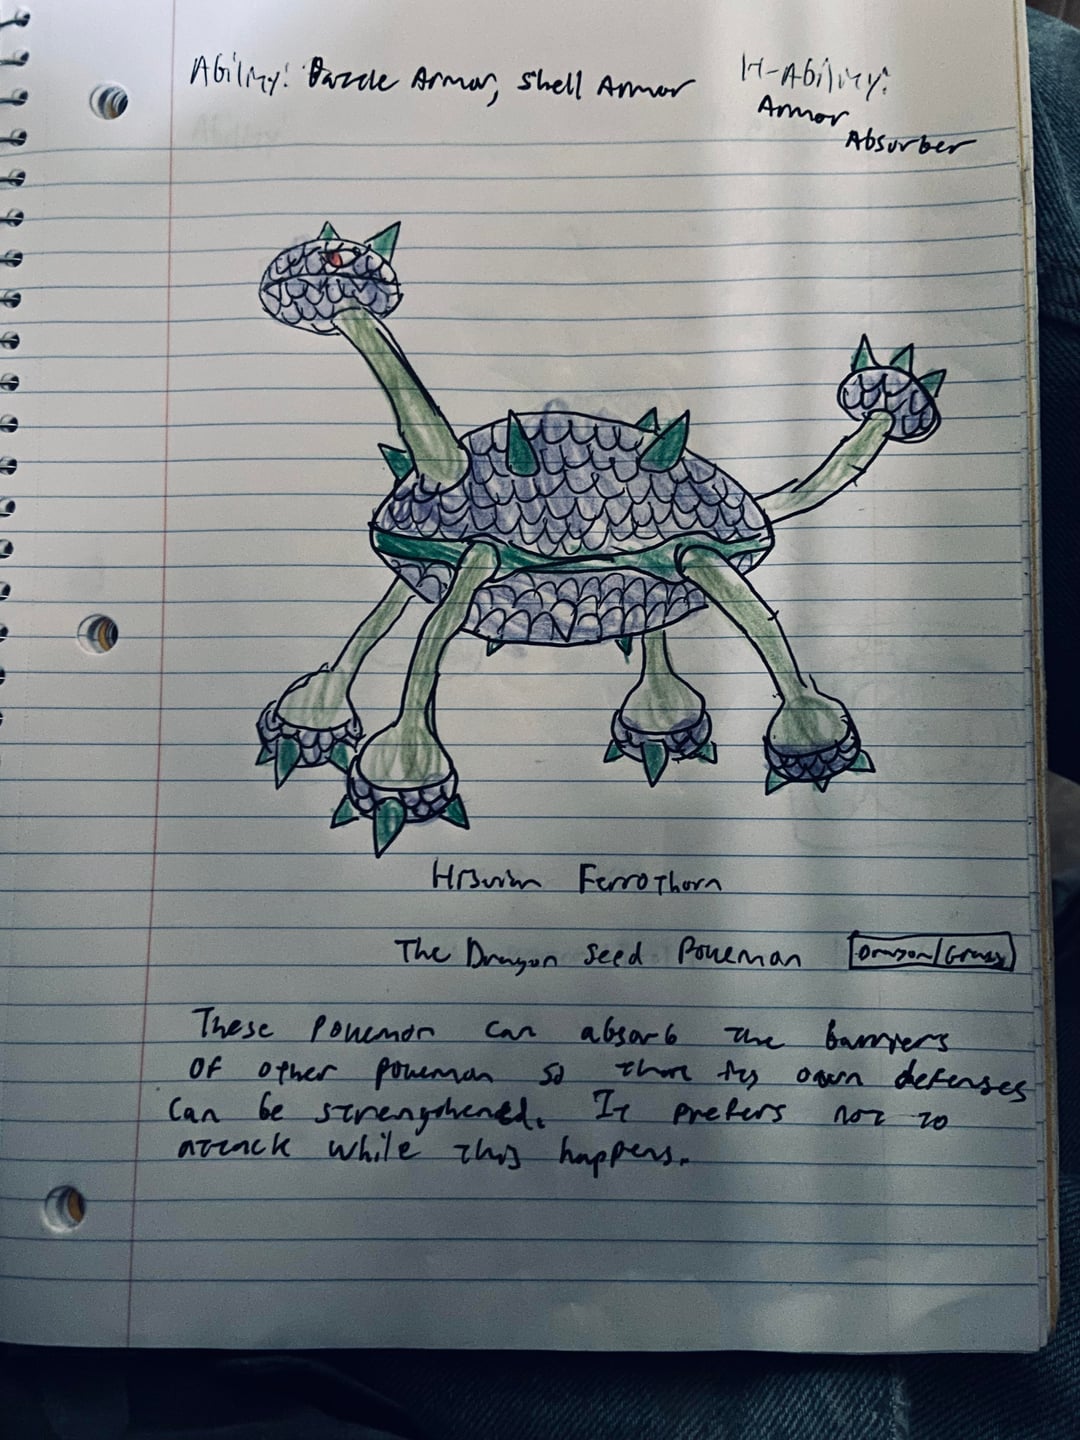 Ability: Dazzle Armor, Shell Armor
H-Ability:
Armor
Absorber
Hisuian Ferrothorn
The Dragon Seed Pokemon Dragon/Grass
These Pokemon can absorb the barriers
of other Pokemon so that its own defenses
can be strengthened. It prefers not to
attack while this happens.